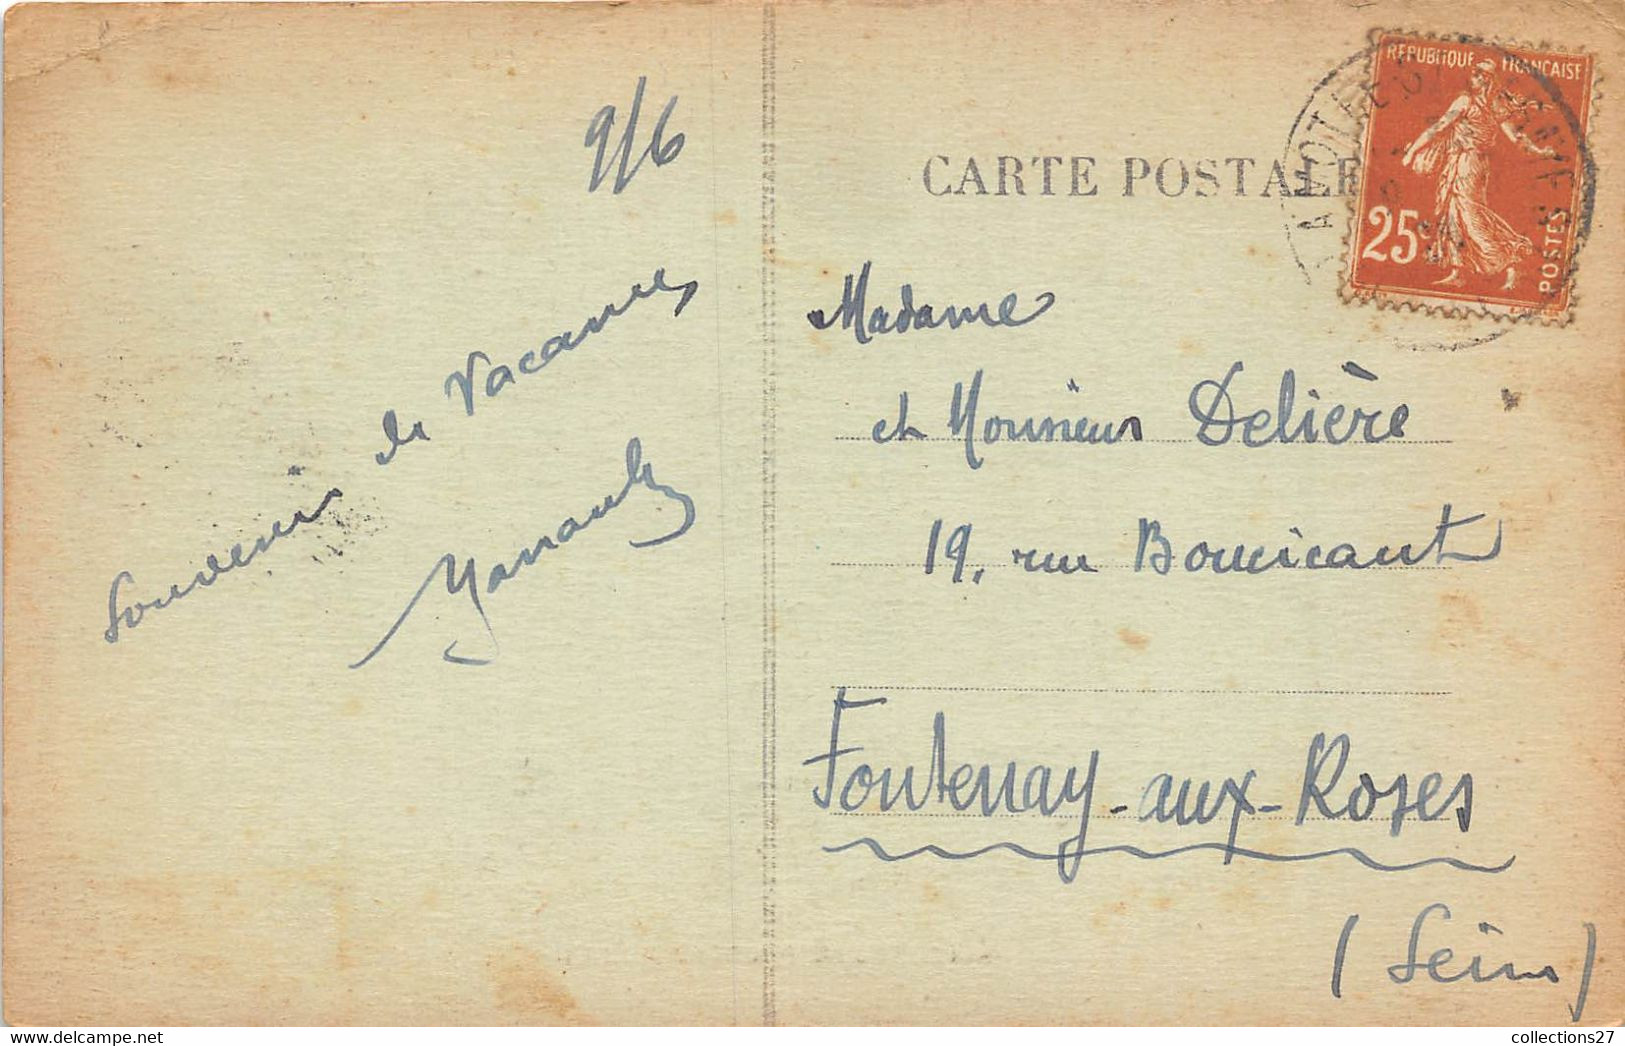 9/6
Souvenir
de Vacances
CARTE POSTALE
REPUBLIQUE FRANCAISE
25c
POSTES
Madame
et Monsieur Delière
19, rue Boucicaut
Fontenay-aux-Roses
(Seine)
collections27